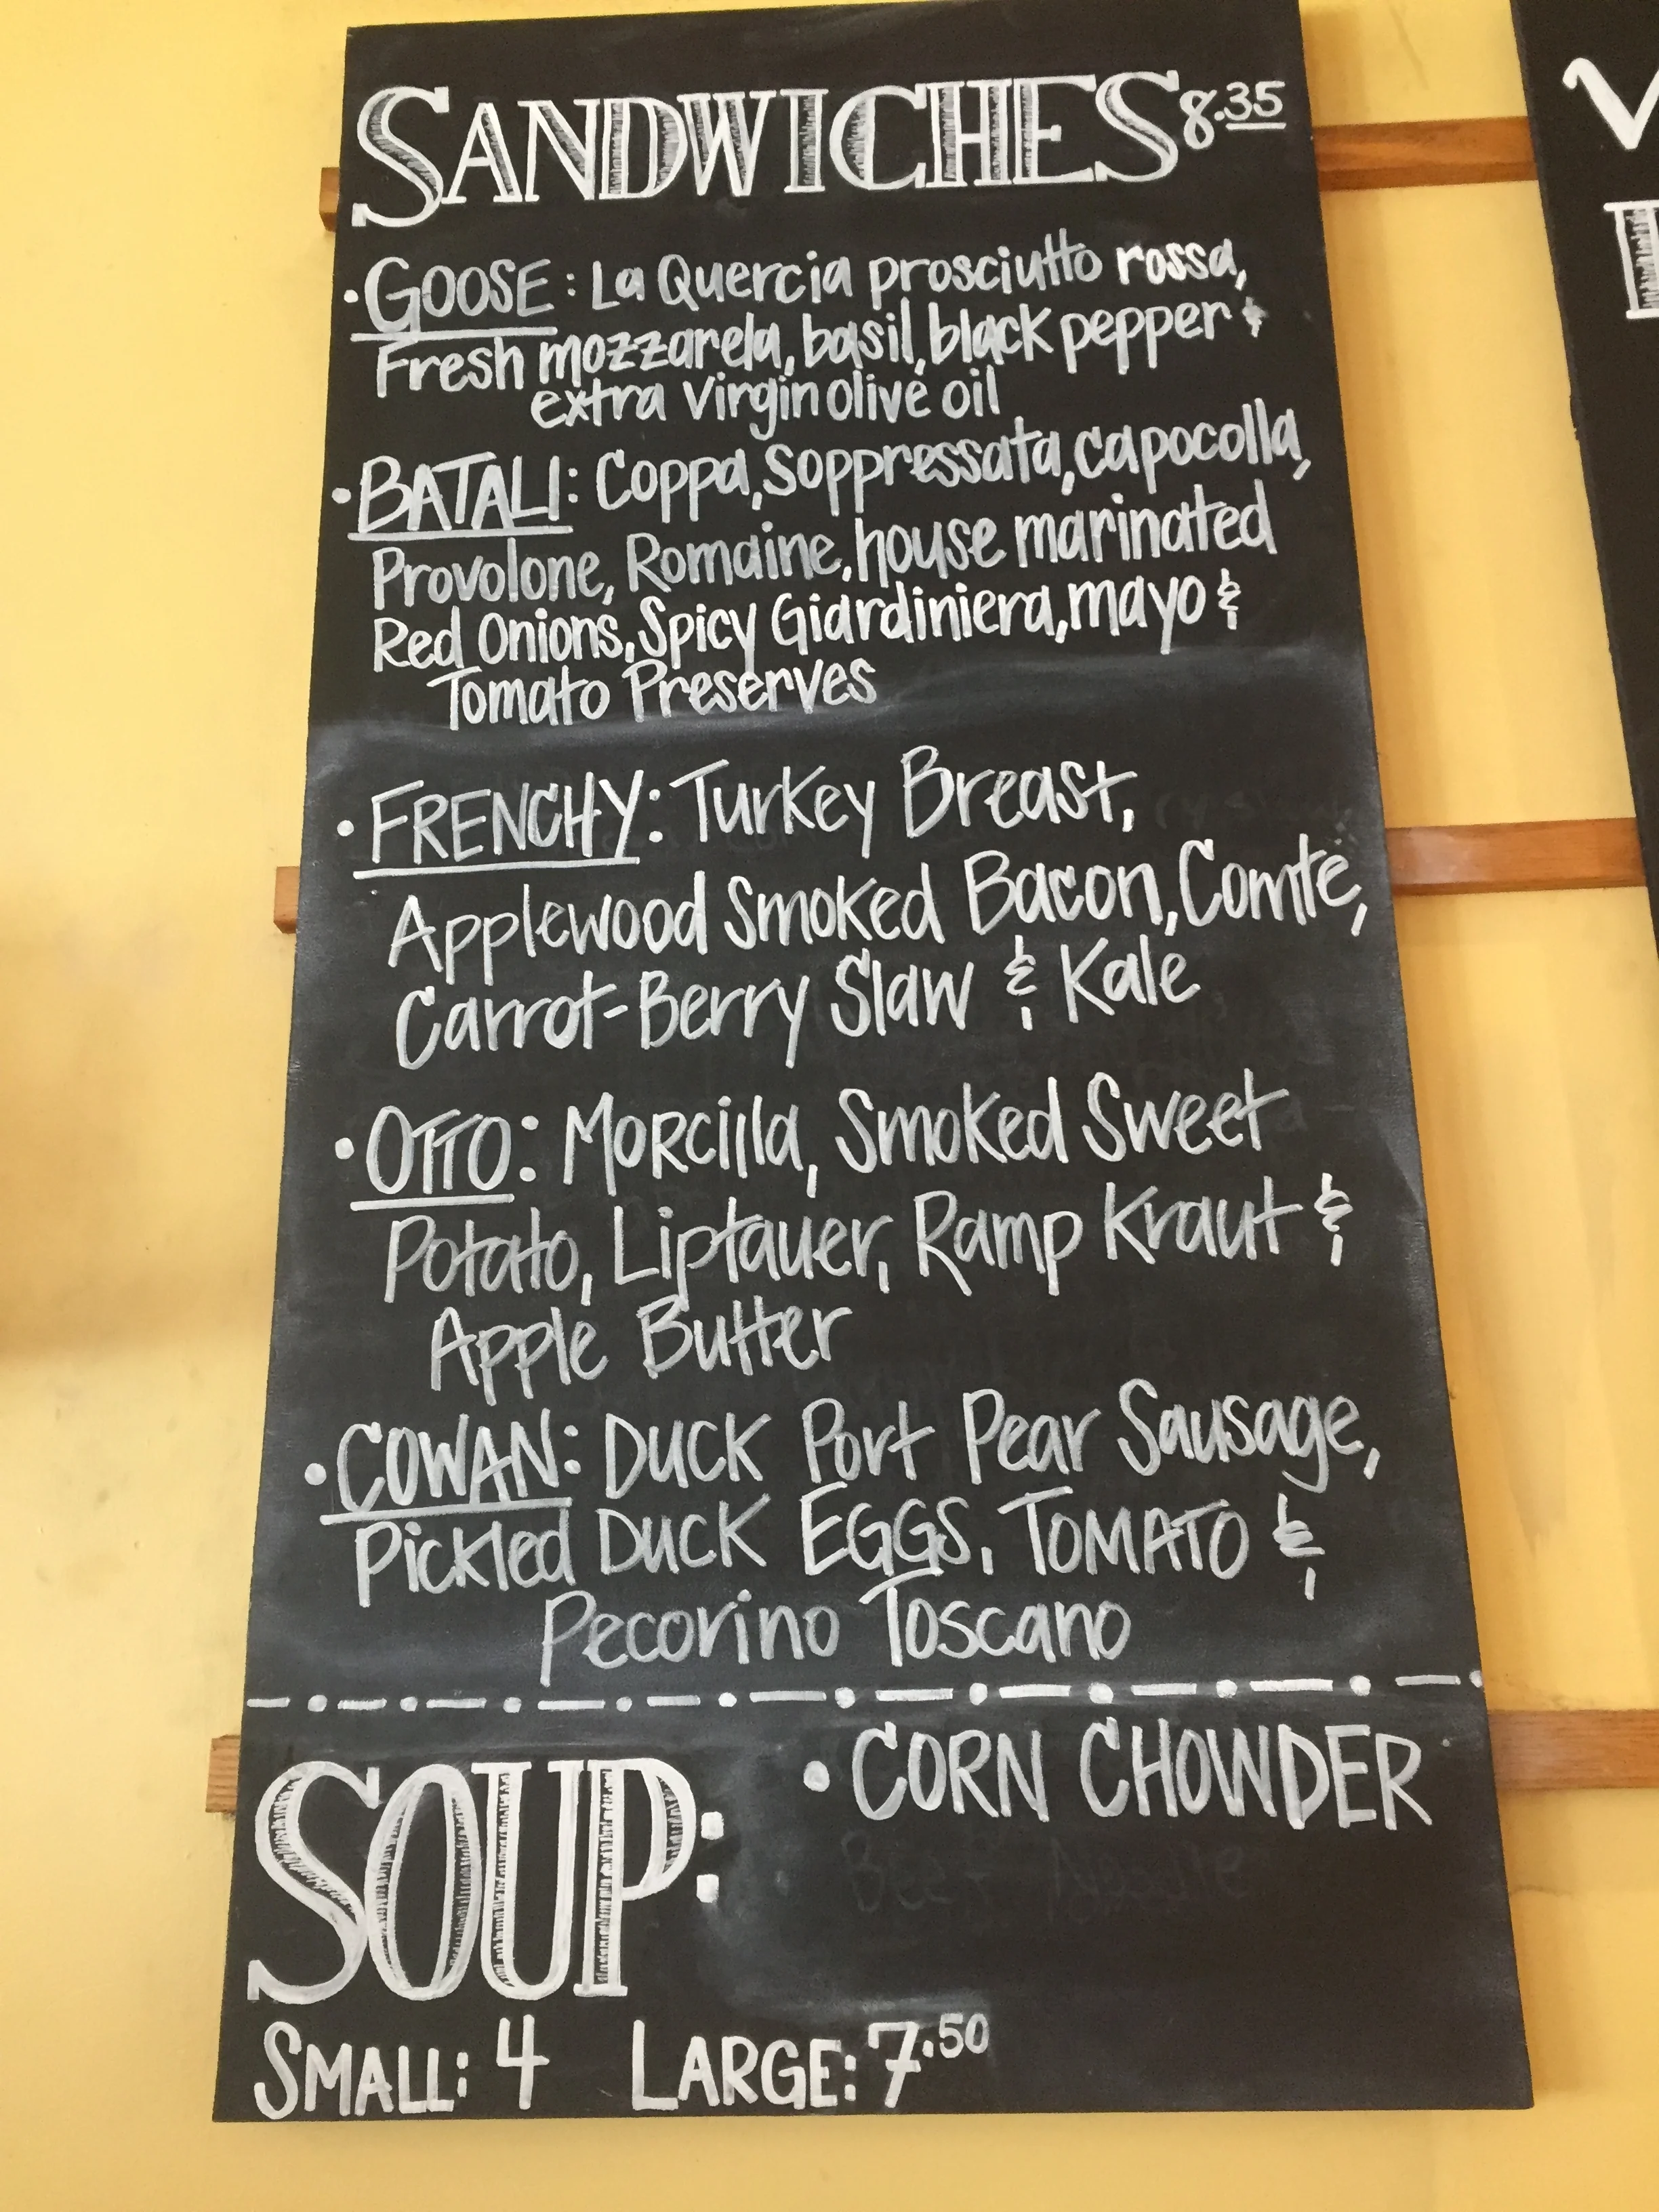 SANDWICHES 8.35
• GOOSE: La Quercia prosciutto rossa,
Fresh mozzarela, basil, black pepper &
extra virgin olive oil
• BATALI: Coppa, Soppressata, capocolla,
Provolone, Romaine, house marinated
Red Onions, Spicy Giardiniera, mayo &
Tomato Preserves
• FRENCHY: Turkey Breast,
Applewood Smoked Bacon, Comte,
Carrot-Berry Slaw & Kale
• OTTO: Morcilla, Smoked Sweet
Potato, Liptauer, Ramp Kraut &
Apple Butter
• COWAN: Duck Port Pear Sausage,
Pickled Duck EGGS, TOMATO &
Pecorino Toscano
SOUP: • CORN CHOWDER
SMALL: 4 LARGE: 7.50